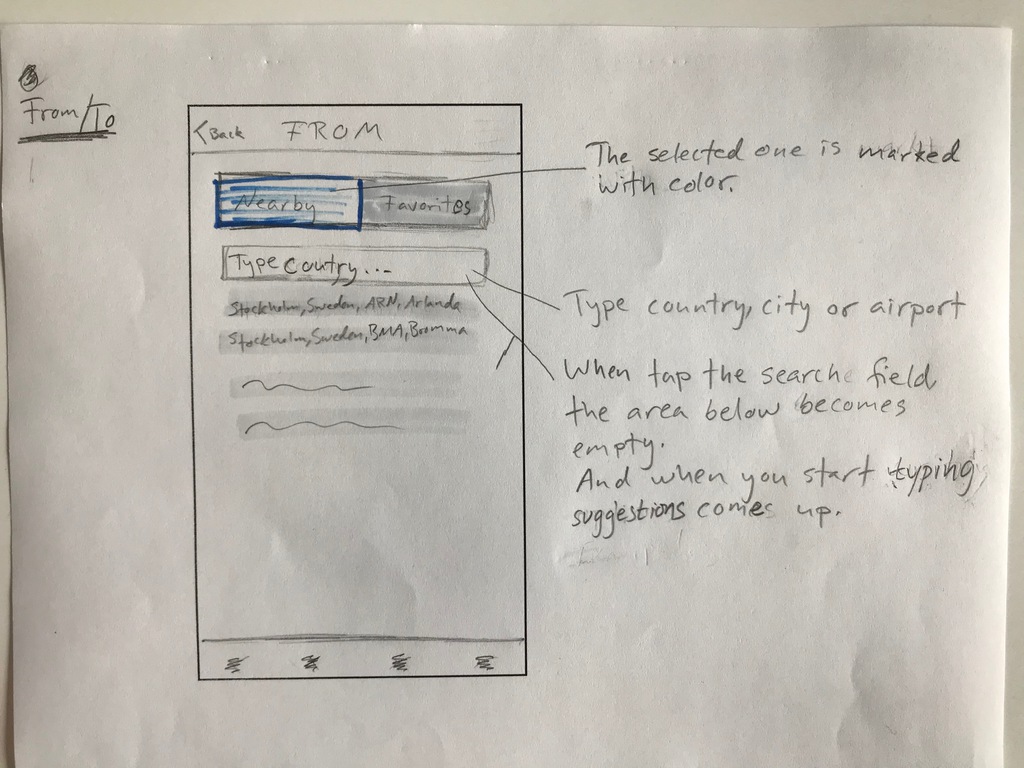 From/To
<Back FROM
Nearby Favorites
Type coutry...
Stockholm, Sweden, ARN, Arlanda
Stockholm, Sweden, BMA, Bromma
The selected one is marked
with color.
Type country, city or airport
When tap the searche field
the area below becomes
empty.
And when you start typing
suggestions comes up.